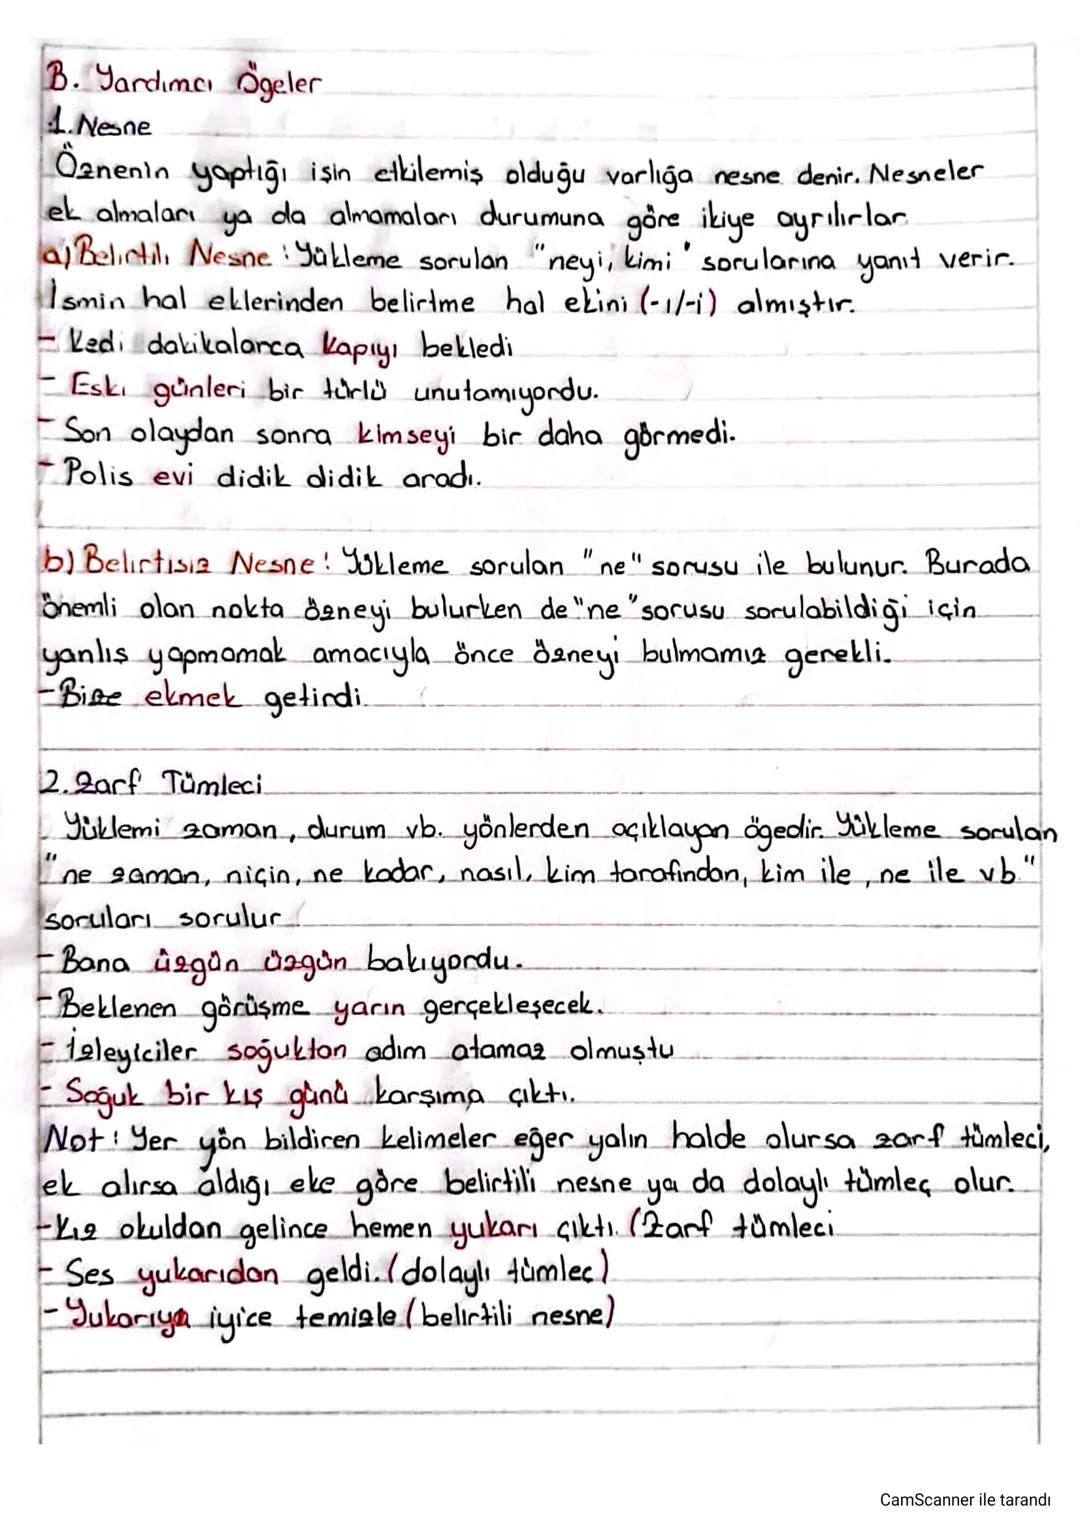 B. Yardımcı Ögeler
1. Nesne
Öznenin yaptığı işin etkilemiş olduğu varlığa nesne denir. Nesneler
ek almaları ya da almamaları durumuna göre ikiye ayrılırlar.
a) Belirtili Nesne: Yükleme sorulan "neyi, kimi" sorularına yanıt verir.
İsmin hal eklerinden belirtme hal ekini (-ı/-i) almıştır.
- Kedi dakikalarca kapıyı bekledi
- Eski günleri bir türlü unutamıyordu.
- Son olaydan sonra kimseyi bir daha görmedi.
- Polis evi didik didik aradı.
b) Belirtisiz Nesne: Yükleme sorulan "ne" sorusu ile bulunur. Burada
önemli olan nokta özneyi bulurken de "ne" sorusu sorulabildiği için
yanlış yapmamak amacıyla önce özneyi bulmamız gerekli.
- Bize ekmek getirdi.
2. Zarf Tümleci
Yüklemi zaman, durum vb. yönlerden açıklayan ögedir. Yükleme sorulan
"ne zaman, niçin, ne kadar, nasıl, kim tarafından, kim ile, ne ile vb."
soruları sorulur.
- Bana üzgün üzgün bakıyordu.
- Beklenen görüşme yarın gerçekleşecek.
- İzleyiciler soğuktan adım atamaz olmuştu
- Soğuk bir kış günü karşıma çıktı.
Not: Yer yön bildiren kelimeler eğer yalın halde olursa zarf tümleci,
ek alırsa aldığı eke göre belirtili nesne ya da dolaylı tümleç olur.
- Kız okuldan gelince hemen yukarı çıktı. (Zarf tümleci
- Ses yukarıdan geldi. (dolaylı tümlec)
- Yukarıyı iyice temizle (belirtili nesne)
CamScanner ile tarandı